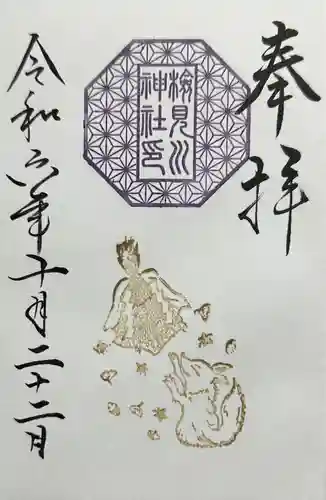 奉拝
検見川
神社印
令和六年十月二十二月